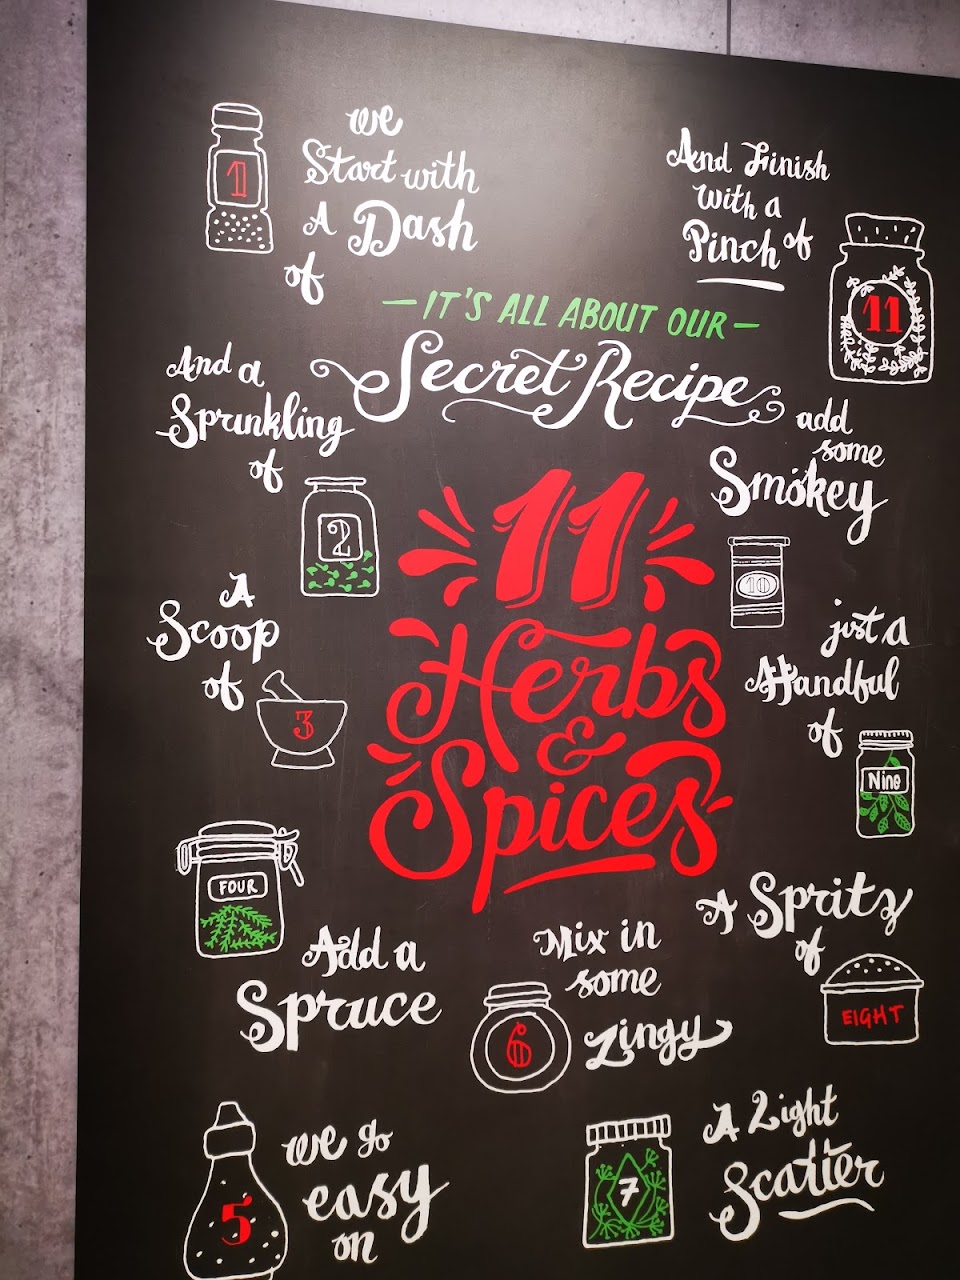 we
Start with
A Dash
of
1
And a
Sprinkling
of
2
A
Scoop
of
3
FOUR
Add a
Spruce
we go
easy
on
5
Mix in
some
Zingy
6
A Light
Scatter
7
A Spritz
of
EIGHT
just a
Handful
of
Nine
add
some
Smokey
10
And Finish
with a
Pinch of
11
—IT'S ALL ABOUT OUR—
Secret Recipe
11
Herbs
&
Spices